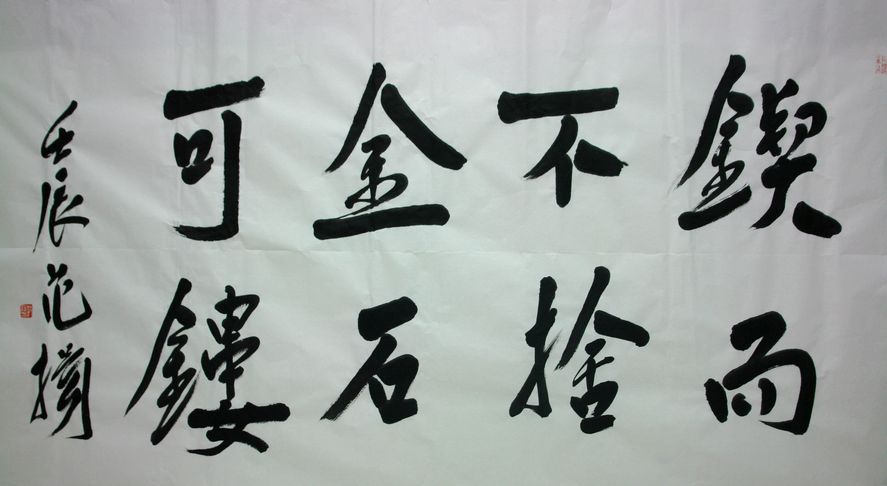 鍥而
不捨
金石
可鏤
壬辰范